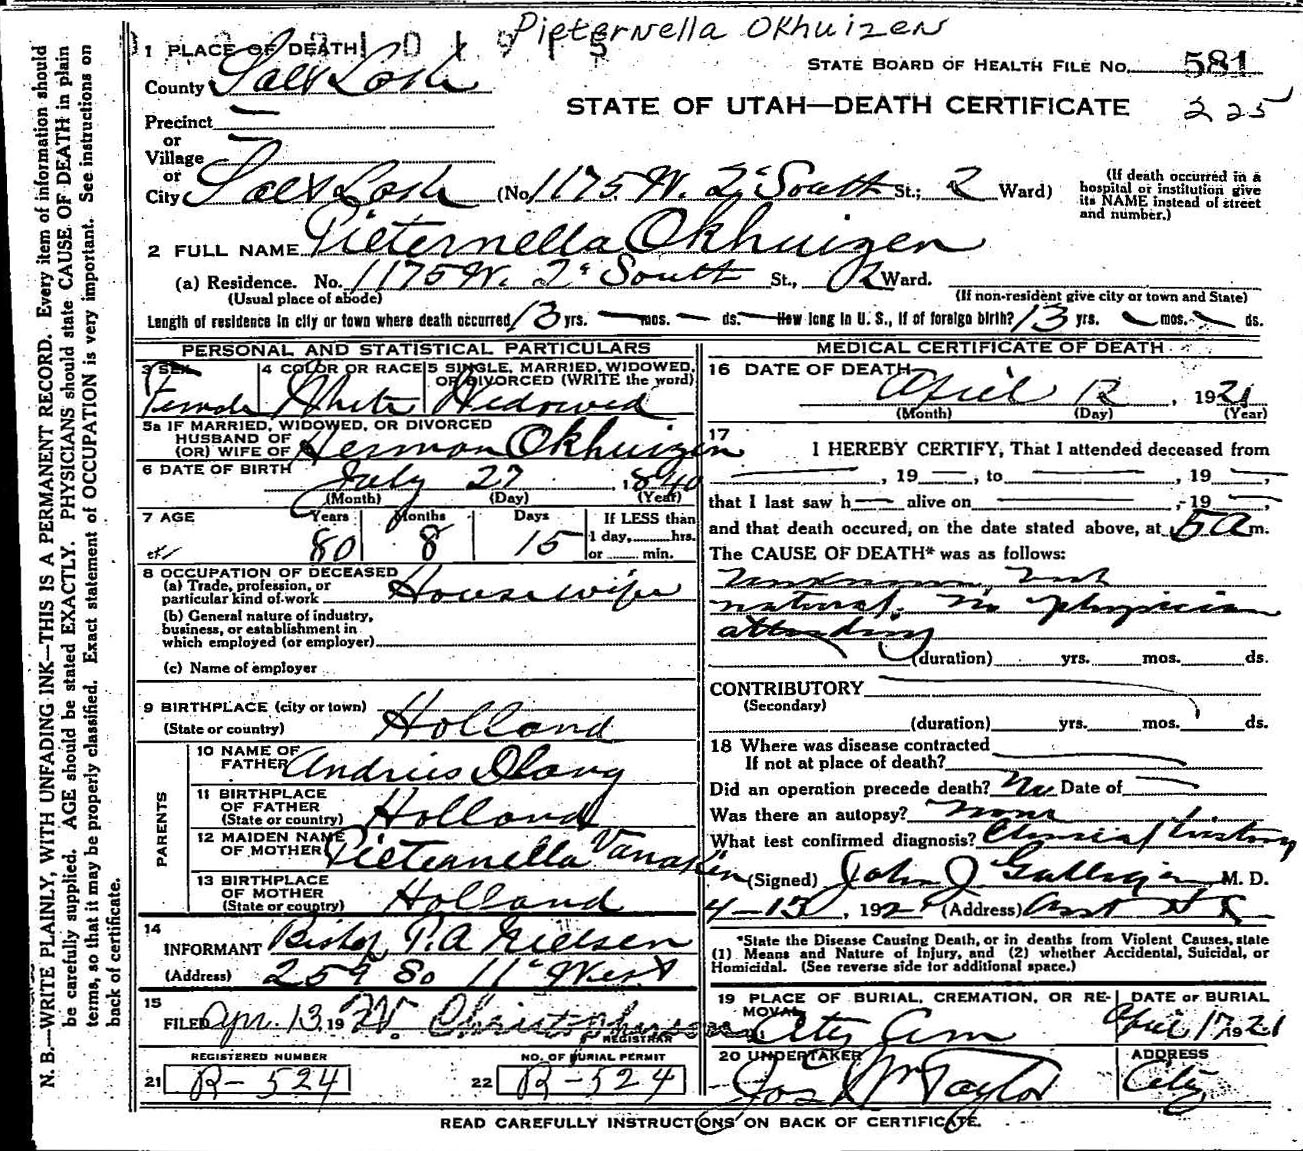 Pieternella Okhuizen
1 PLACE OF DEATH
STATE BOARD OF HEALTH FILE No. 581
County Salt Lake
STATE OF UTAH—DEATH CERTIFICATE
225
Precinct
or
Village
or
City Salt Lake (No. 1175 W. 2d South St.; 2 Ward)
(If death occurred in a
hospital or institution give
its NAME instead of street
and number.)
2 FULL NAME Pieternella Okhuizen
(a) Residence. No. 1175 W. 2d South St., 2 Ward.
(Usual place of abode)
(If non-resident give city or town and State)
Length of residence in city or town where death occurred 13 yrs. — mos. — ds. How long in U. S., if of foreign birth? 13 yrs. — mos. — ds.
PERSONAL AND STATISTICAL PARTICULARS
3 SEX
Female
4 COLOR OR RACE
White
5 SINGLE, MARRIED, WIDOWED,
OR DIVORCED (WRITE the word)
Widowed
5a IF MARRIED, WIDOWED, OR DIVORCED
HUSBAND OF
(OR) WIFE OF Herman Okhuizen
6 DATE OF BIRTH July 27, 1840
(Month) (Day) (Year)
7 AGE Years Months Days If LESS than
80 8 15 1 day, hrs.
or min.
8 OCCUPATION OF DECEASED
(a) Trade, profession, or
particular kind of work Housewife
(b) General nature of industry,
business, or establishment in
which employed (or employer)
(c) Name of employer
9 BIRTHPLACE (city or town)
(State or country) Holland
PARENTS
10 NAME OF
FATHER Andries
11 BIRTHPLACE
OF FATHER
(State or country) Holland
12 MAIDEN NAME
OF MOTHER Pieternella Vanakin
13 BIRTHPLACE
OF MOTHER
(State or country) Holland
14
INFORMANT Bishop P.A. Nielsen
(Address) 259 So 11" West
15
FILED Apr. 13, 19 W. Christopherson
REGISTRAR
REGISTERED NUMBER
21 R-524
NO. OF BURIAL PERMIT
22 R-524
MEDICAL CERTIFICATE OF DEATH
16 DATE OF DEATH
April 12, 1921
(Month) (Day) (Year)
17
I HEREBY CERTIFY, That I attended deceased from
—, 19 —, to —, 19 —,
that I last saw h— alive on —, 19 —
and that death occured, on the date stated above, at 5 a m.
The CAUSE OF DEATH* was as follows:
Unknown but
natural. No physician
attending
(duration) yrs. mos. ds.
CONTRIBUTORY
(Secondary)
(duration) yrs. mos. ds.
18 Where was disease contracted
If not at place of death?
Did an operation precede death? No Date of —
Was there an autopsy? None
What test confirmed diagnosis? Clinical history
(Signed) John J Galligan M. D.
4-13, 192 (Address)
*State the Disease Causing Death, or in deaths from Violent Causes, state
(1) Means and Nature of Injury, and (2) whether Accidental, Suicidal, or
Homicidal. (See reverse side for additional space.)
19 PLACE OF BURIAL, CREMATION, OR RE-
MOVAL City Cem
DATE OF BURIAL
April 17 1921
20 UNDERTAKER
Jos Wm Taylor
ADDRESS
City
READ CAREFULLY INSTRUCTIONS ON BACK OF CERTIFICATE.
N. B.—WRITE PLAINLY, WITH UNFADING INK—THIS IS A PERMANENT RECORD. Every item of information should
be carefully supplied. AGE should be stated EXACTLY. PHYSICIANS should state CAUSE OF DEATH in plain
terms, so that it may be properly classified. Exact statement of OCCUPATION is very important. See instructions on
back of certificate.